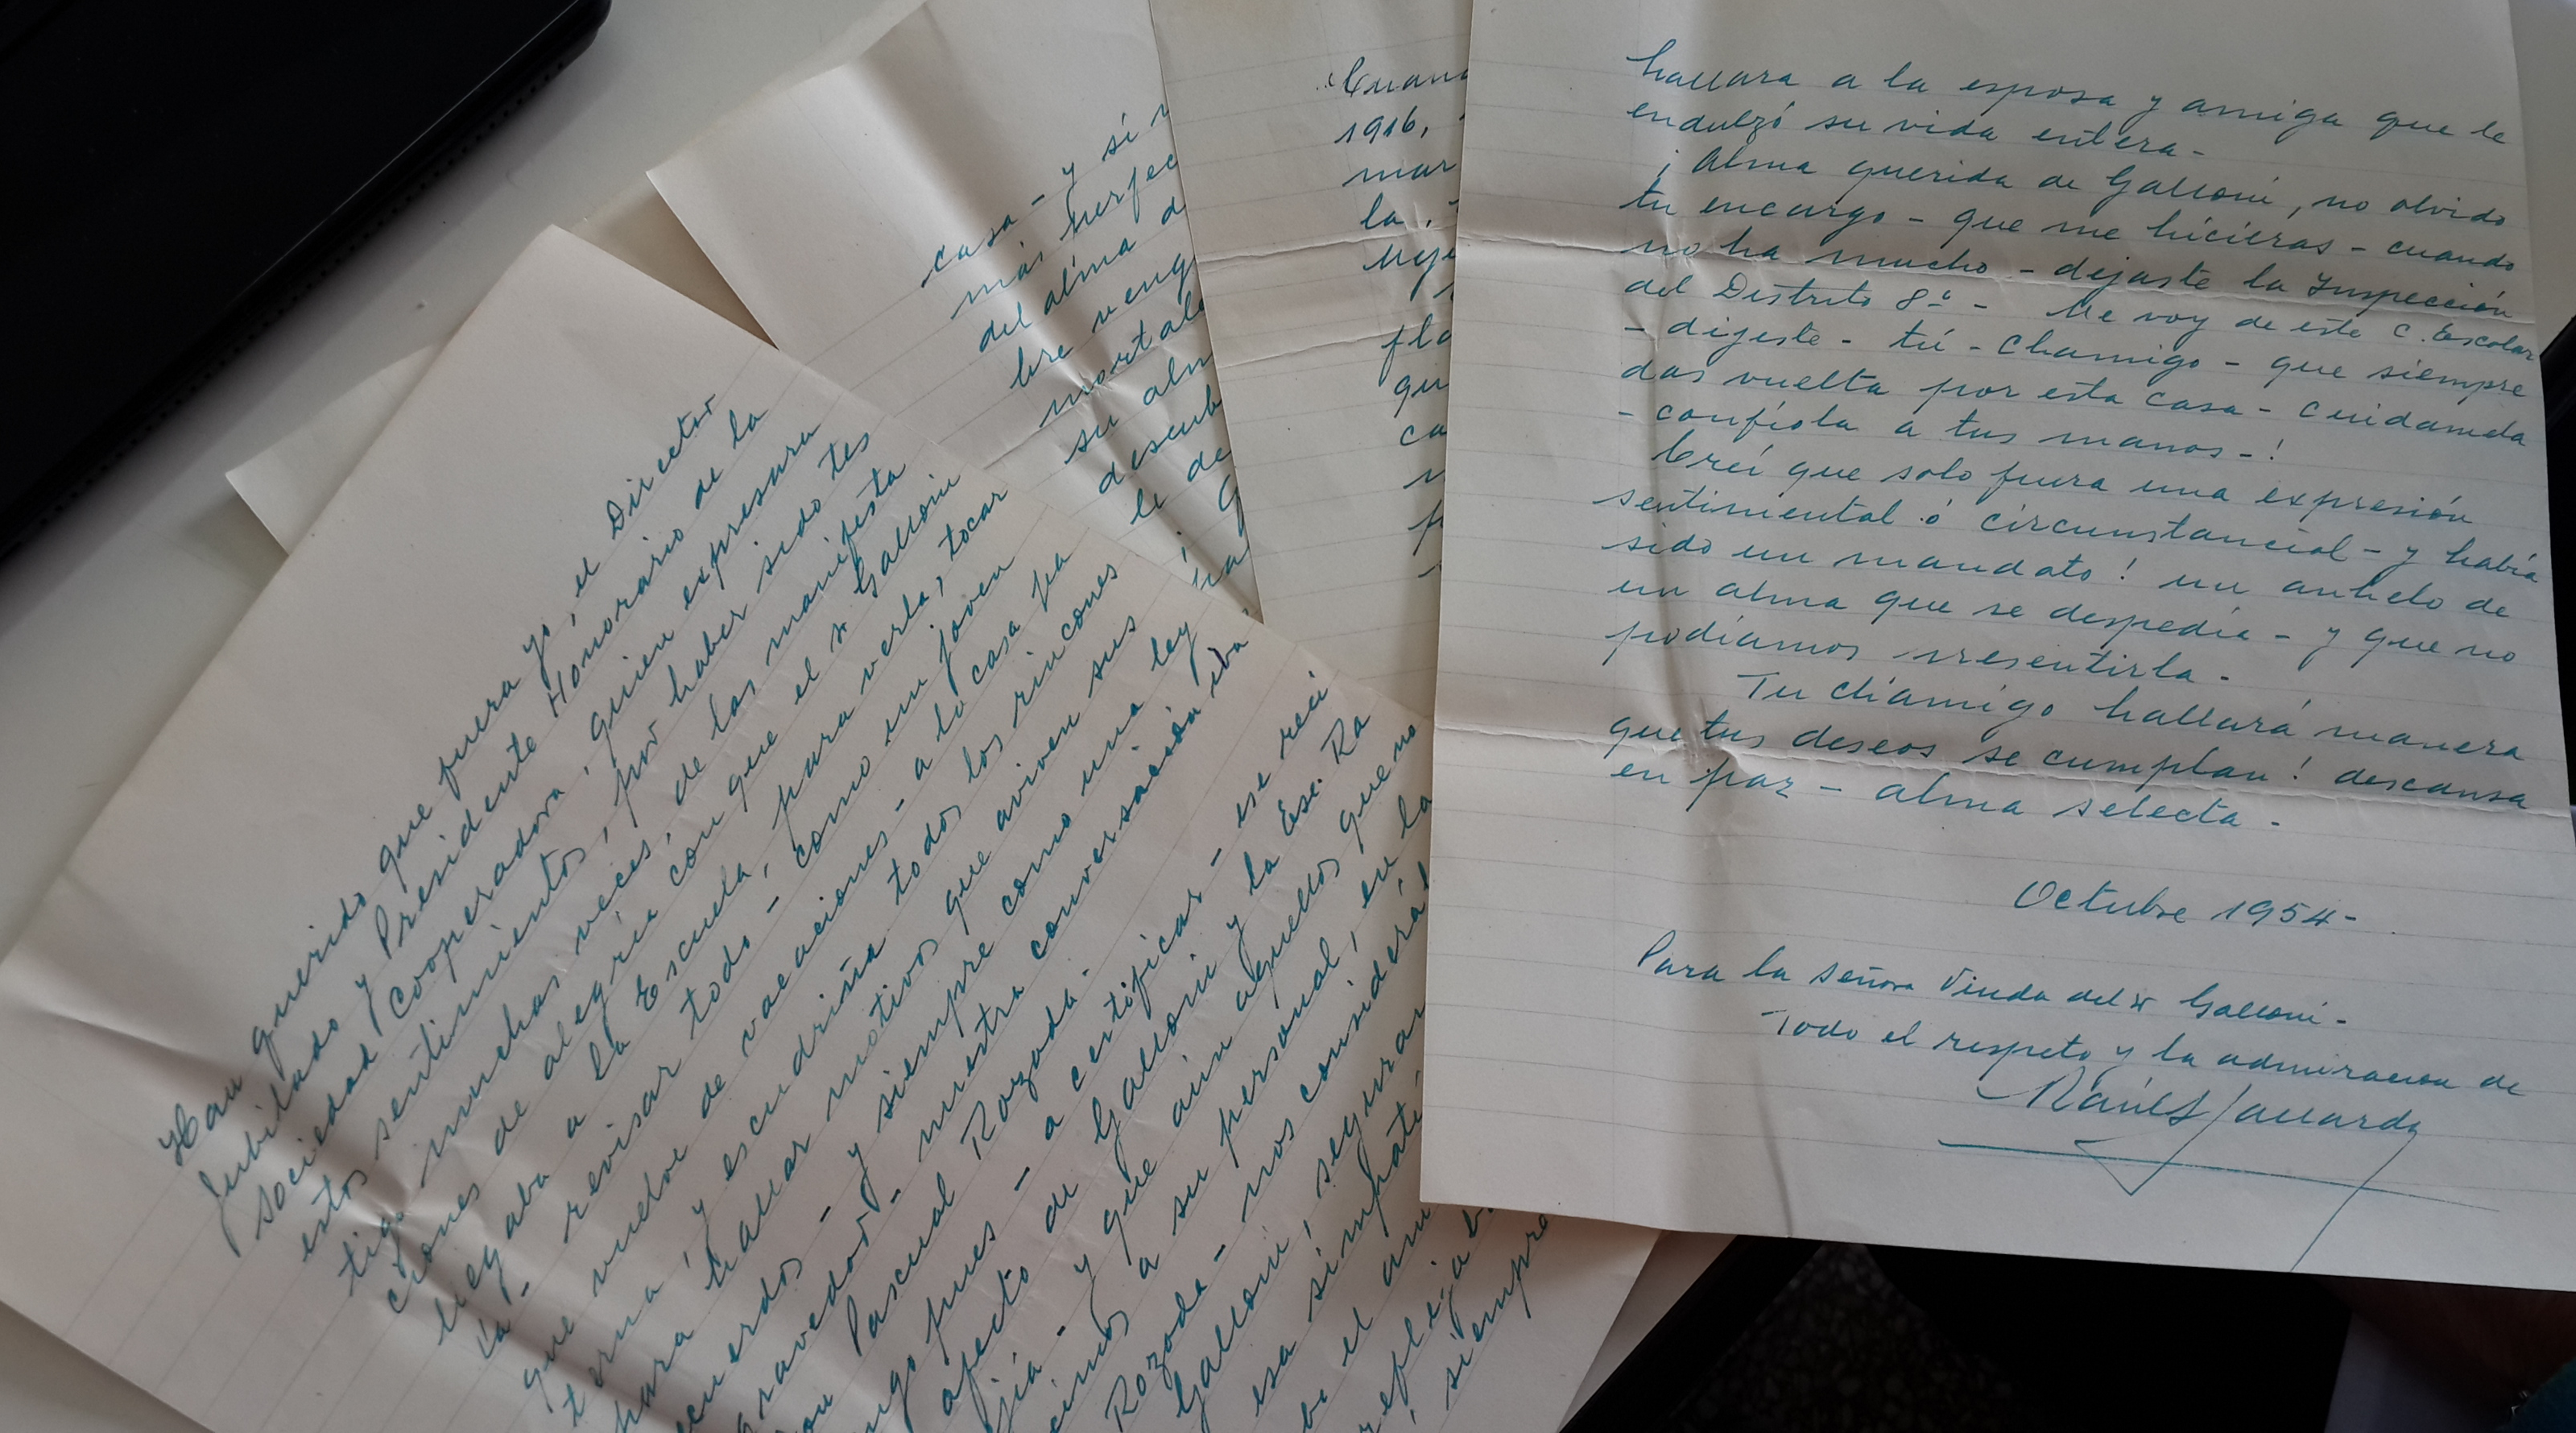 Han querido que fuera yo, el Director
Jubilado y Presidente Honorario de la
Sociedad Cooperadora, quien expresara
estos sentimientos, por haber sido tes
tigo muchas veces, de las manifesta
ciones de alegría con que el sr Galloni
llegaba a la Escuela, para verla, tocar
la - revisar todo - como un joven
que vuelve de vacaciones - a la casa pa
terna, y escudriña todos los rincones
para hallar motivos que aviven sus
recuerdos - y siempre como una ley
nuestra conversación iba
Pascual Rozada -
pues - a certificar - ese reci
afecto de Galloni y la Esc. Ra
y que aún aquellos que no
a su personal, en la
Rozada - nos considerá
Galloni, segurar
esa simpatí
el am
siempre
casa - y si
más perfec
del alma d
bre veng
mortale
su alm
descub
le de
¡ G
ha
Cuan
1916,
mar
la
Meje
fla
qu
ca
hallara a la esposa y amiga que le
endulzó su vida entera -
¡ Alma querida de Galloni, no olvido
tu encargo - que me hicieras - cuando
no ha mucho - dejaste la Inspección
del Distrito 8º - Me voy de este C. Escolar
- dijeste - tú - Chamigo - que siempre
das vuelta por esta casa - cuidamela
- confíola a tus manos - !
Creí que solo fuera una expresión
sentimental ó circunstancial - y había
sido un mandato ! un anhelo de
un alma que se despedía - y que no
podíamos presentirla -
Tu chamigo hallará manera
que tus deseos se cumplan ! descansa
en paz - alma selecta -
Octubre 1954 -
Para la señora Viuda del sr Galloni -
Todo el respeto y la admiración de